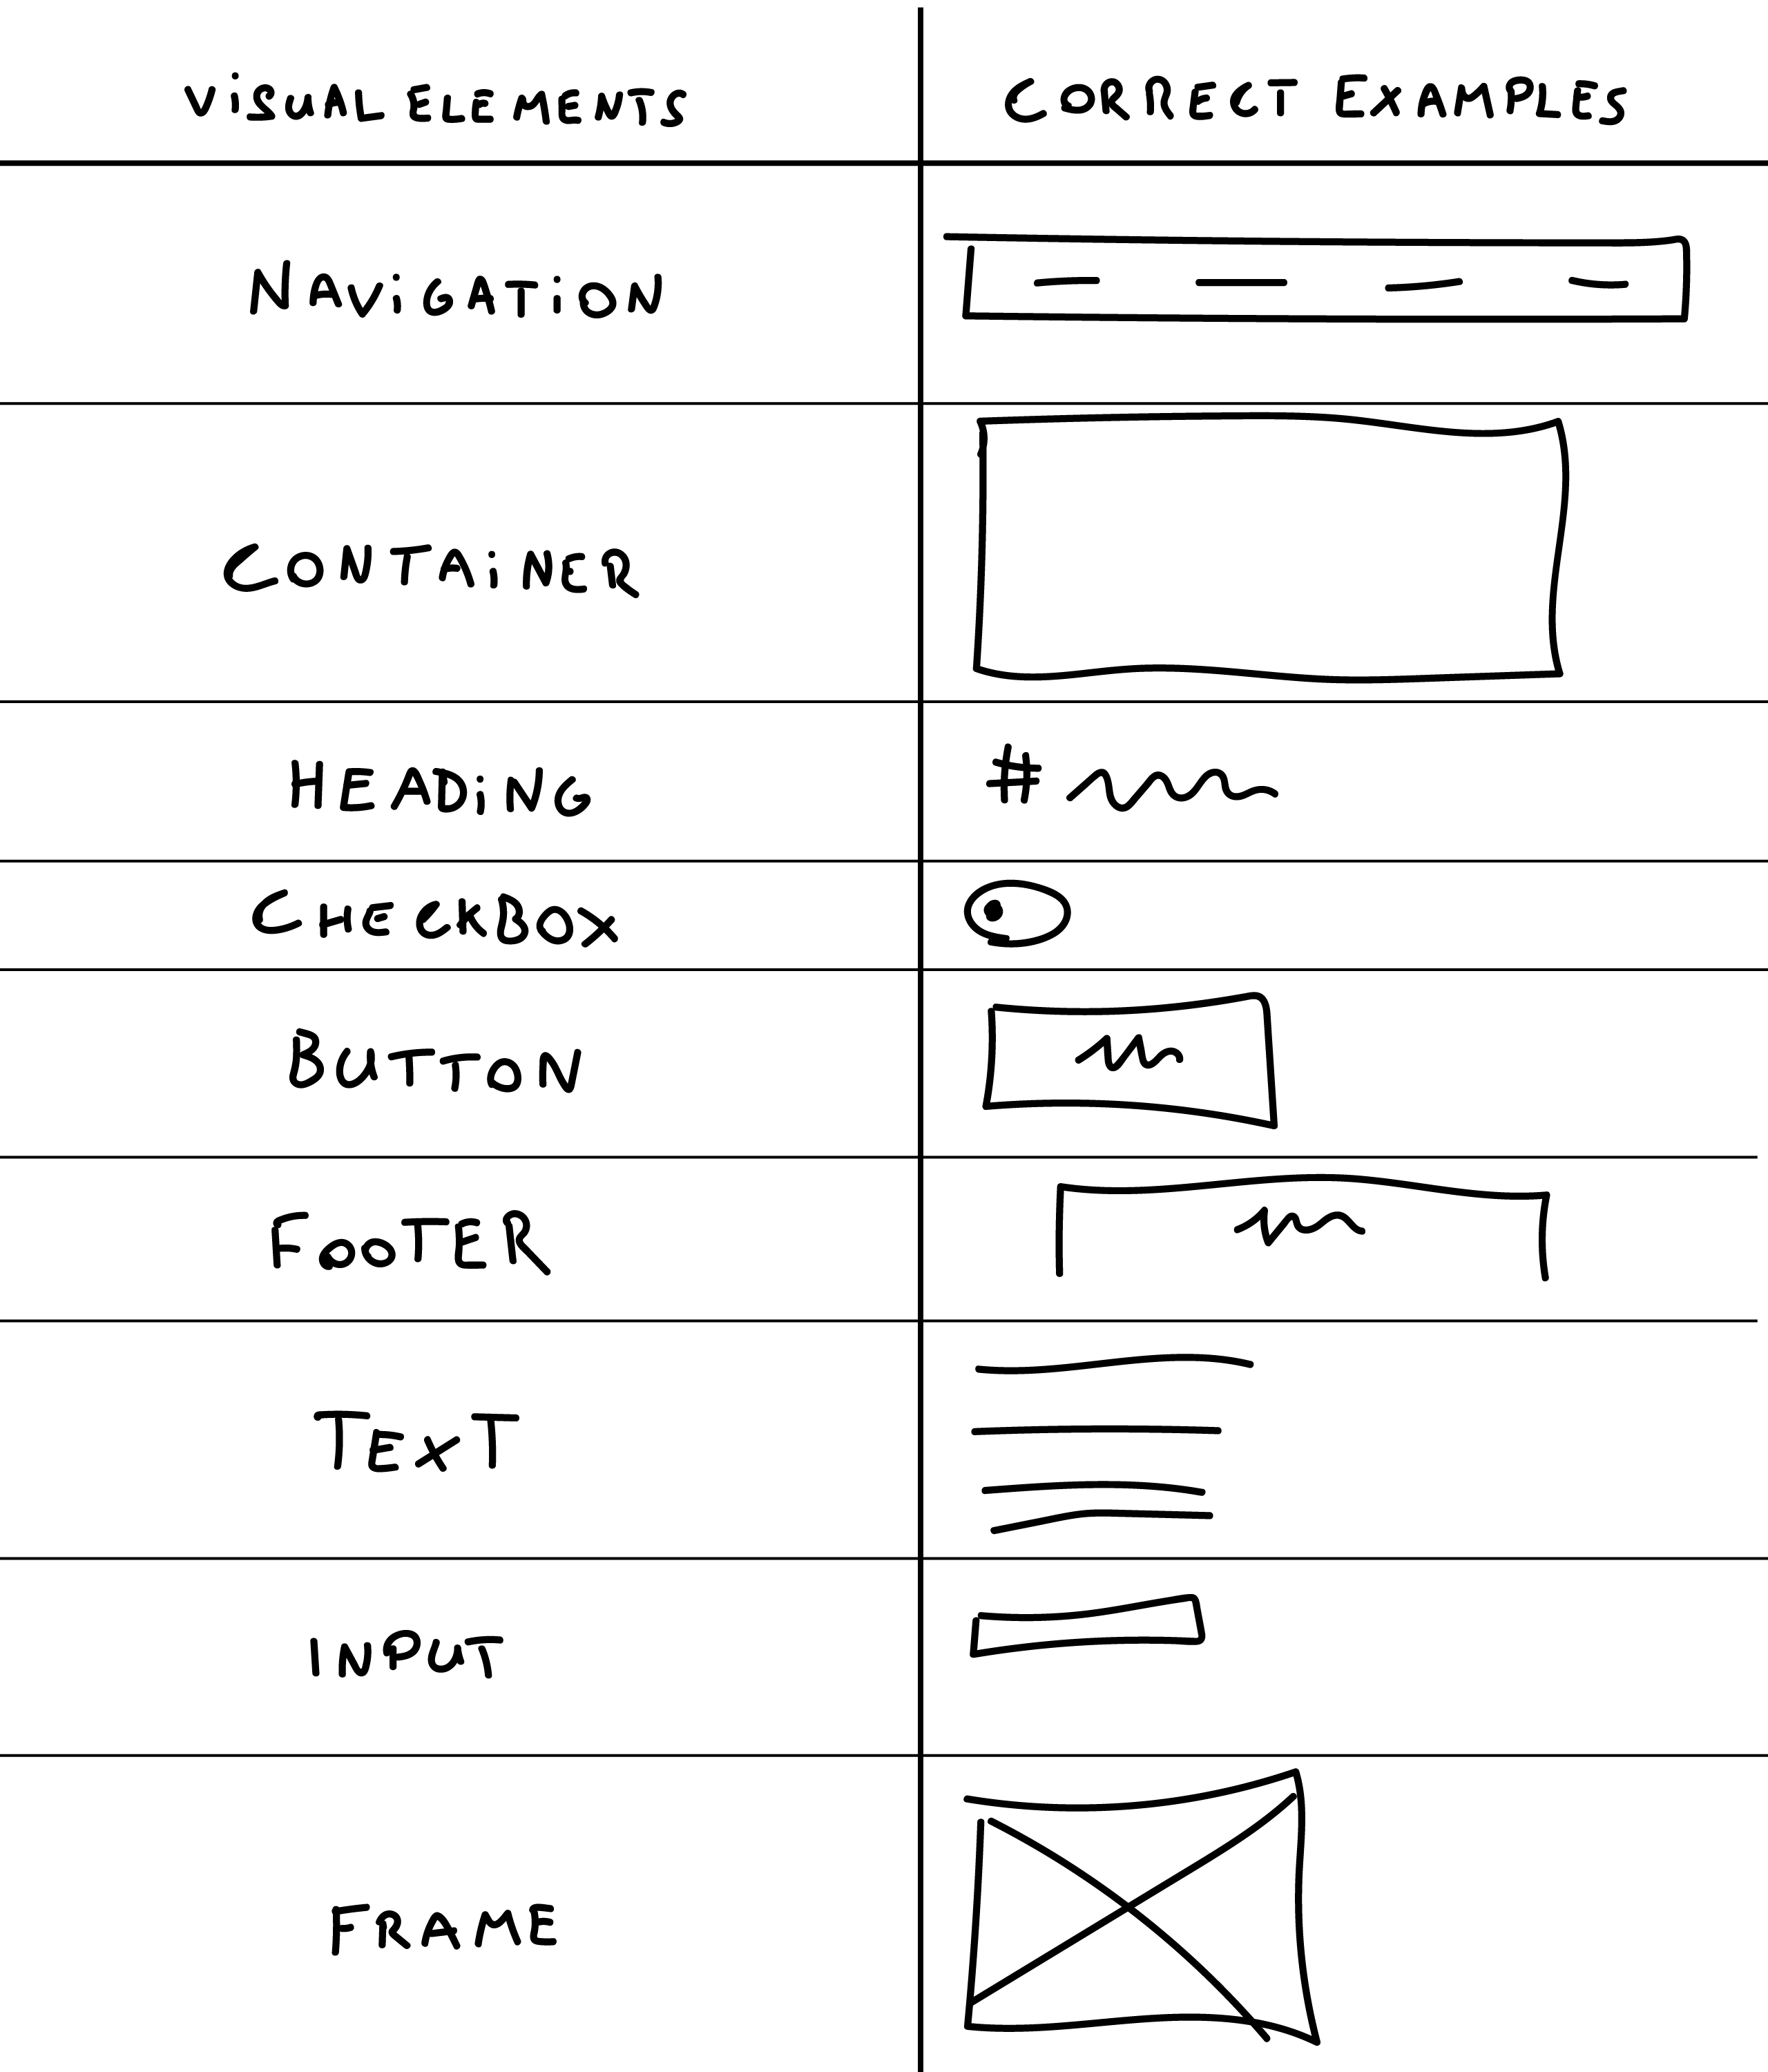 ViSUAL ELEMENTS
CORRECT EXAMPLES
NAViGATiON
CONTAiNER
HEADiNG
#
CHECKBOX
BUTTON
FOOTER
TEXT
INPUT
FRAME